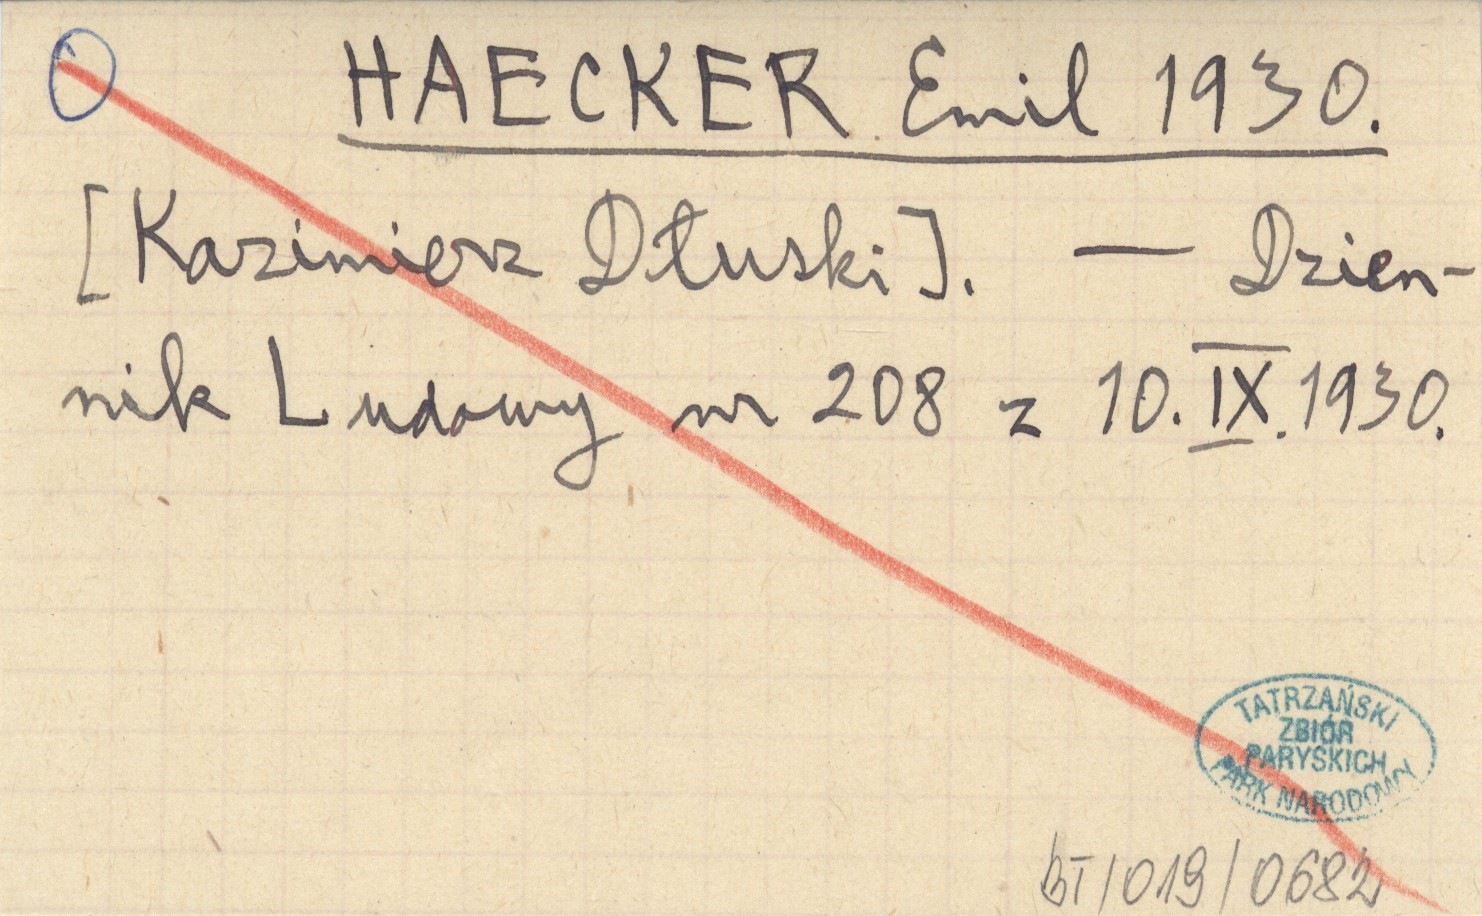 HAECKER Emil 1930.
[Kazimierz Dłuski]. — Dzien-
nik Ludowy nr 208 z 10.IX.1930.
TATRZAŃSKI
ZBIÓR
PARYSKICH
PARK NARODOWY
BT/019/0682